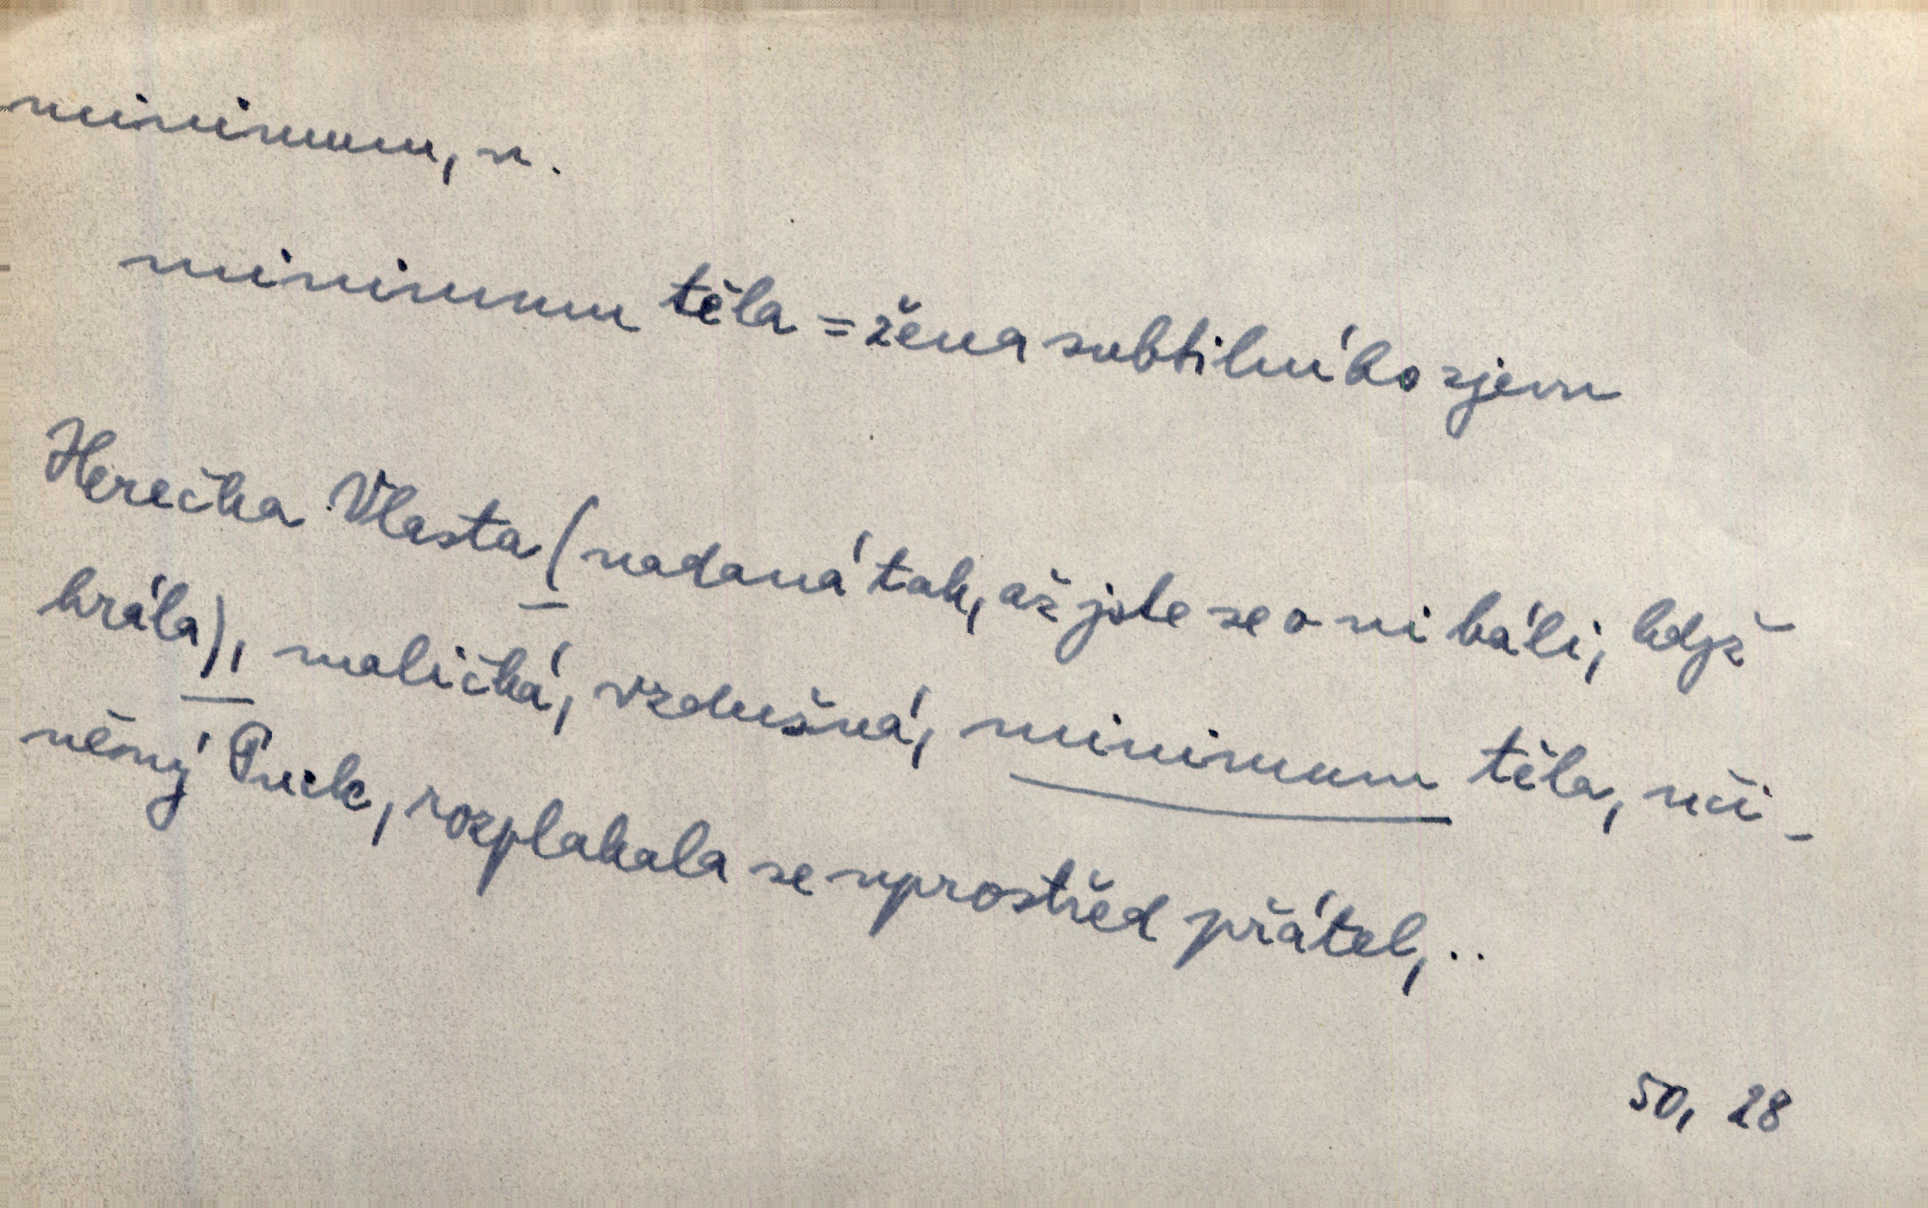 minimum, n.
minimum těla = žena subtilního zjevu
Herečka Vlasta (nadaná tak, až jste se o ni báli, když
hrála), maličká, vzdušná, minimum těla, uči-
něný Puck, rozplakala se uprostřed přátel, ..
50, 28